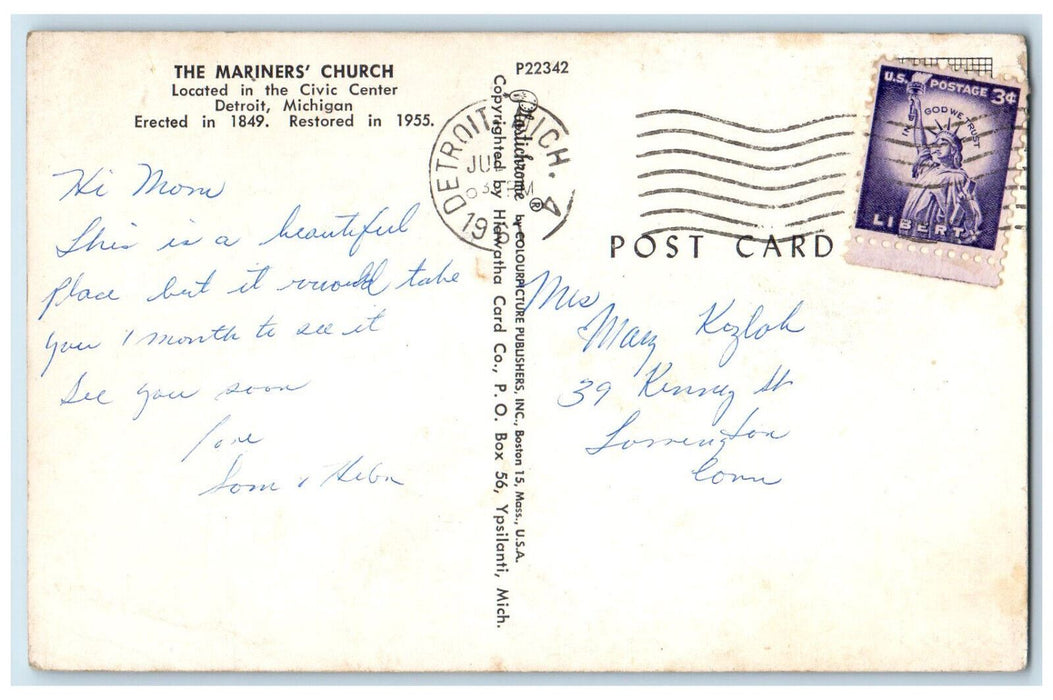 THE MARINERS' CHURCH
Located in the Civic Center
Detroit, Michigan
Erected in 1849. Restored in 1955.
Hi Mom
This is a beautiful
place but it would take
you 1 month to see it
See you soon
love
P22342
Plastichrome ® by COLOURPICTURE PUBLISHERS, INC., Boston 15, Mass., U.S.A.
Copyrighted by Hiawatha Card Co., P. O. Box 56, Ypsilanti, Mich.
DETROIT, MICH. 4
PM
U.S. POSTAGE 3¢
IN GOD WE TRUST
LIBERTY
POST CARD
Mrs
Mary
39 Kenney St
Conn